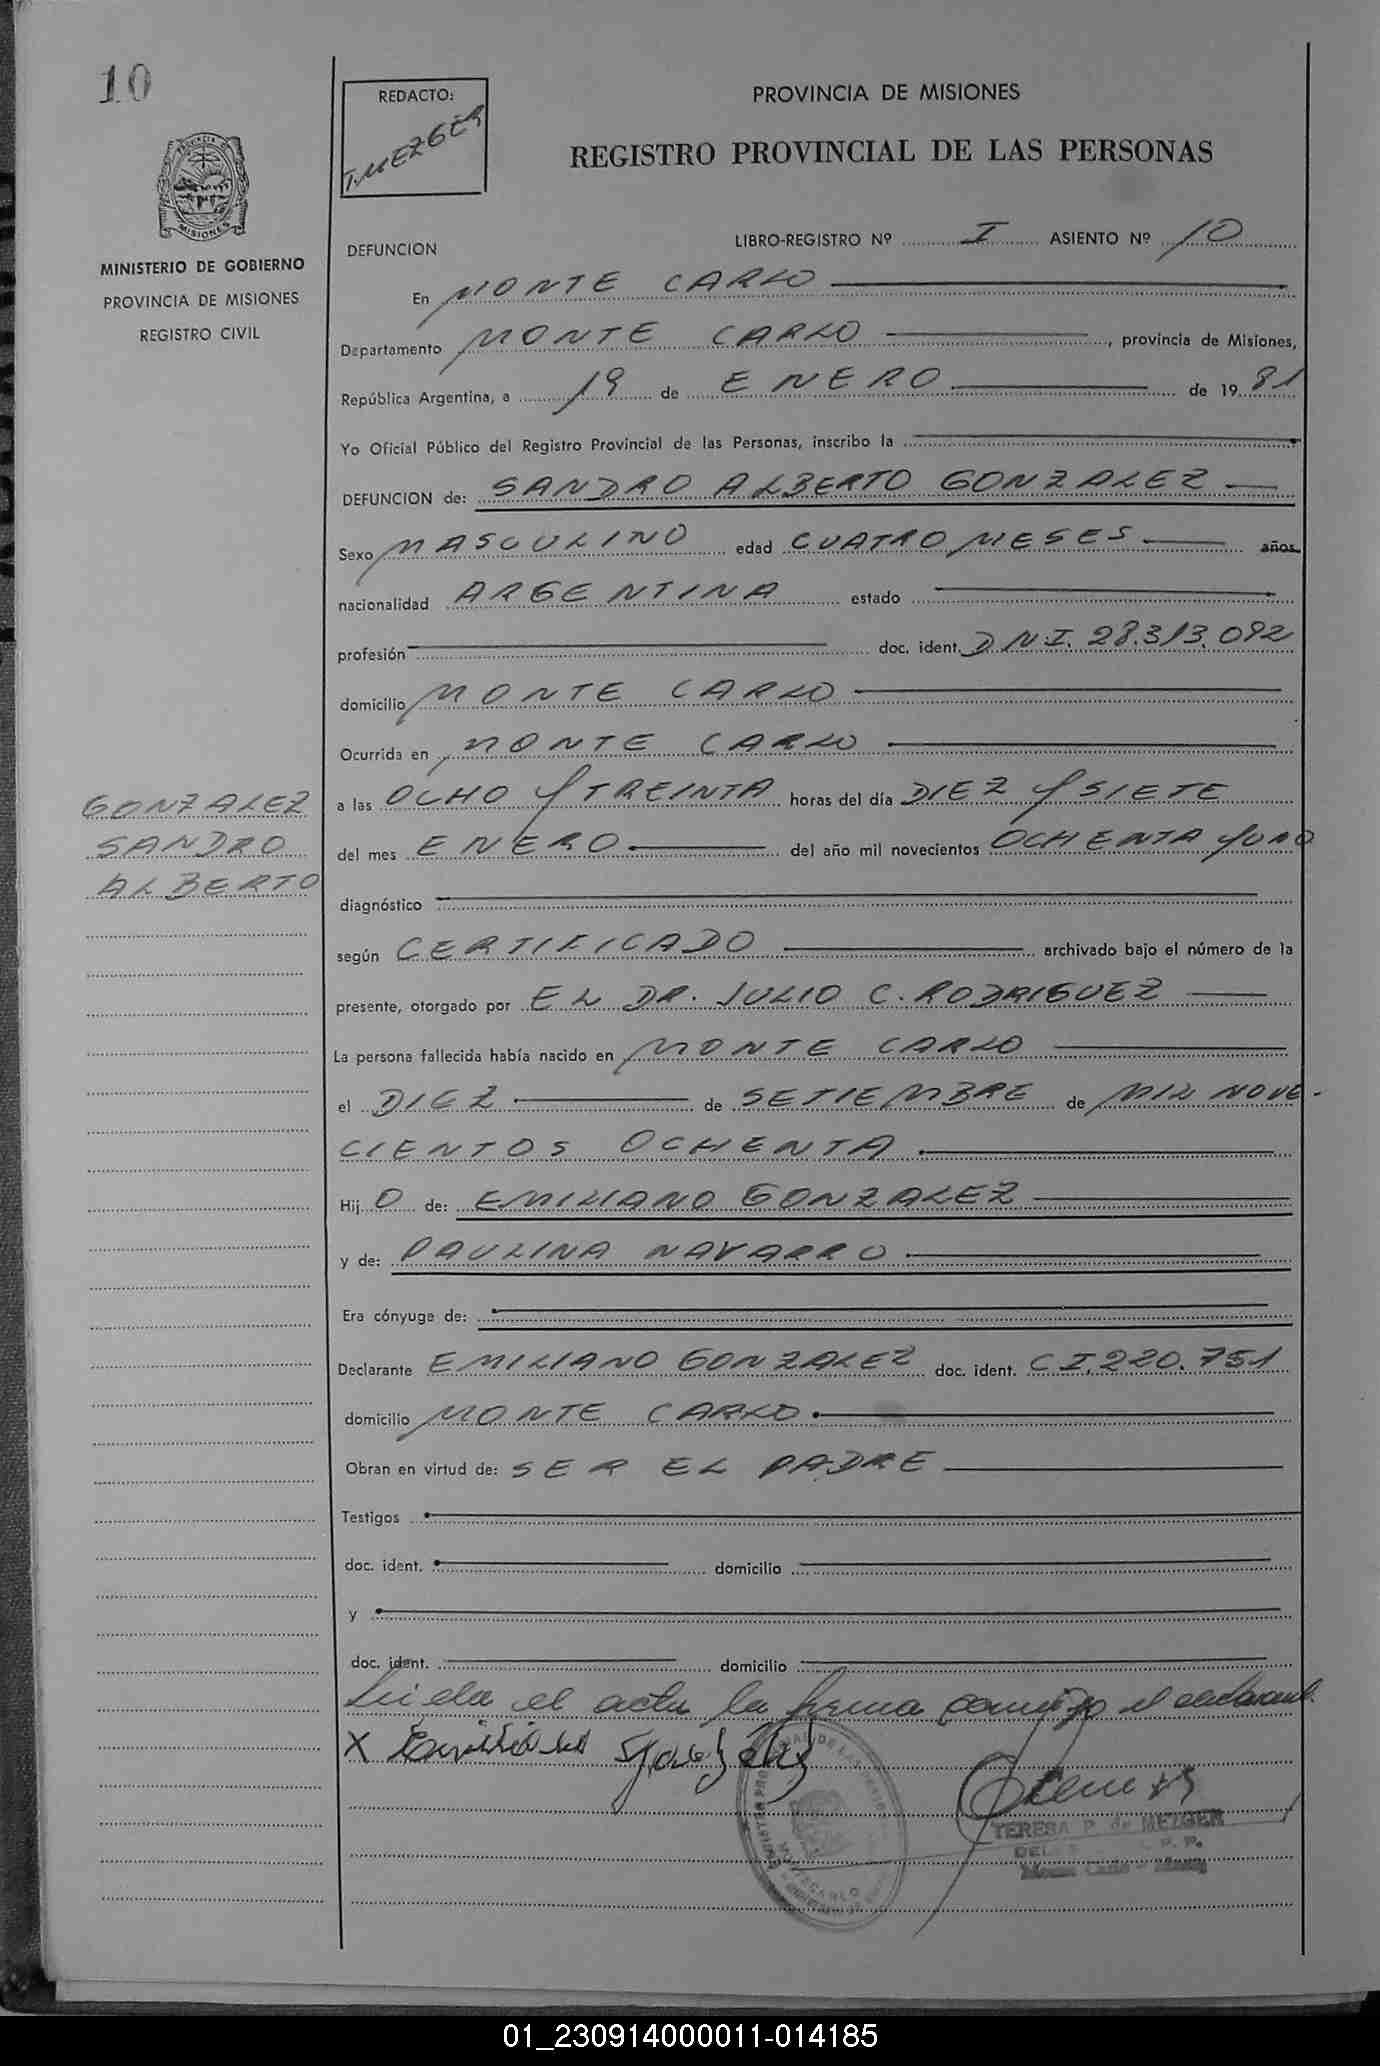 10
REDACTO:
T. MEZGER
PROVINCIA DE MISIONES
REGISTRO PROVINCIAL DE LAS PERSONAS
MINISTERIO DE GOBIERNO
PROVINCIA DE MISIONES
REGISTRO CIVIL
DEFUNCION
LIBRO-REGISTRO Nº I ASIENTO Nº 10
En MONTE CARLO
Departamento MONTE CARLO, provincia de Misiones,
República Argentina, a 19 de ENERO de 1981
Yo Oficial Público del Registro Provincial de las Personas, inscribo la
DEFUNCION de: SANDRO ALBERTO GONZALEZ
Sexo MASCULINO edad CUATRO MESES años
nacionalidad ARGENTINA estado
profesión doc. ident. D.N.I. 28.313.092
domicilio MONTE CARLO
Ocurrida en MONTE CARLO
GONZALEZ
SANDRO
ALBERTO
a las OCHO Y TREINTA horas del día DIEZ Y SIETE
del mes ENERO del año mil novecientos OCHENTA Y UNO
diagnóstico
según CERTIFICADO archivado bajo el número de la
presente, otorgado por EL DR. JULIO C. RODRIGUEZ
La persona fallecida había nacido en MONTE CARLO
el DIEZ de SETIEMBRE de MIL NOVE-
CIENTOS OCHENTA
Hij O de: EMILIANO GONZALEZ
y de: PAULINA NAVARRO
Era cónyuge de:
Declarante EMILIANO GONZALEZ doc. ident. C.I. 220.751
domicilio MONTE CARLO
Obran en virtud de: SER EL PADRE
Testigos
doc. ident. domicilio
y
doc. ident. domicilio
Leida el acta la firma conmigo el declarant.
X Emiliano Gonzalez
TERESA P. de MEZGER
01_230914000011-014185